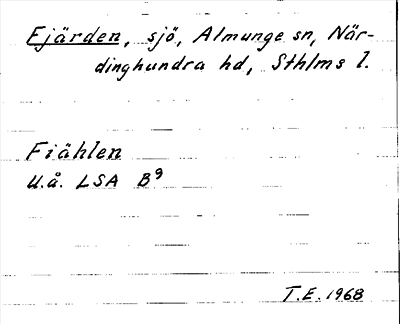 Fjärden, sjö, Almunge sn, När-
dinghundra hd, Sthlms l.
Fiählen
U.å. LSA B⁹
T.E. 1968